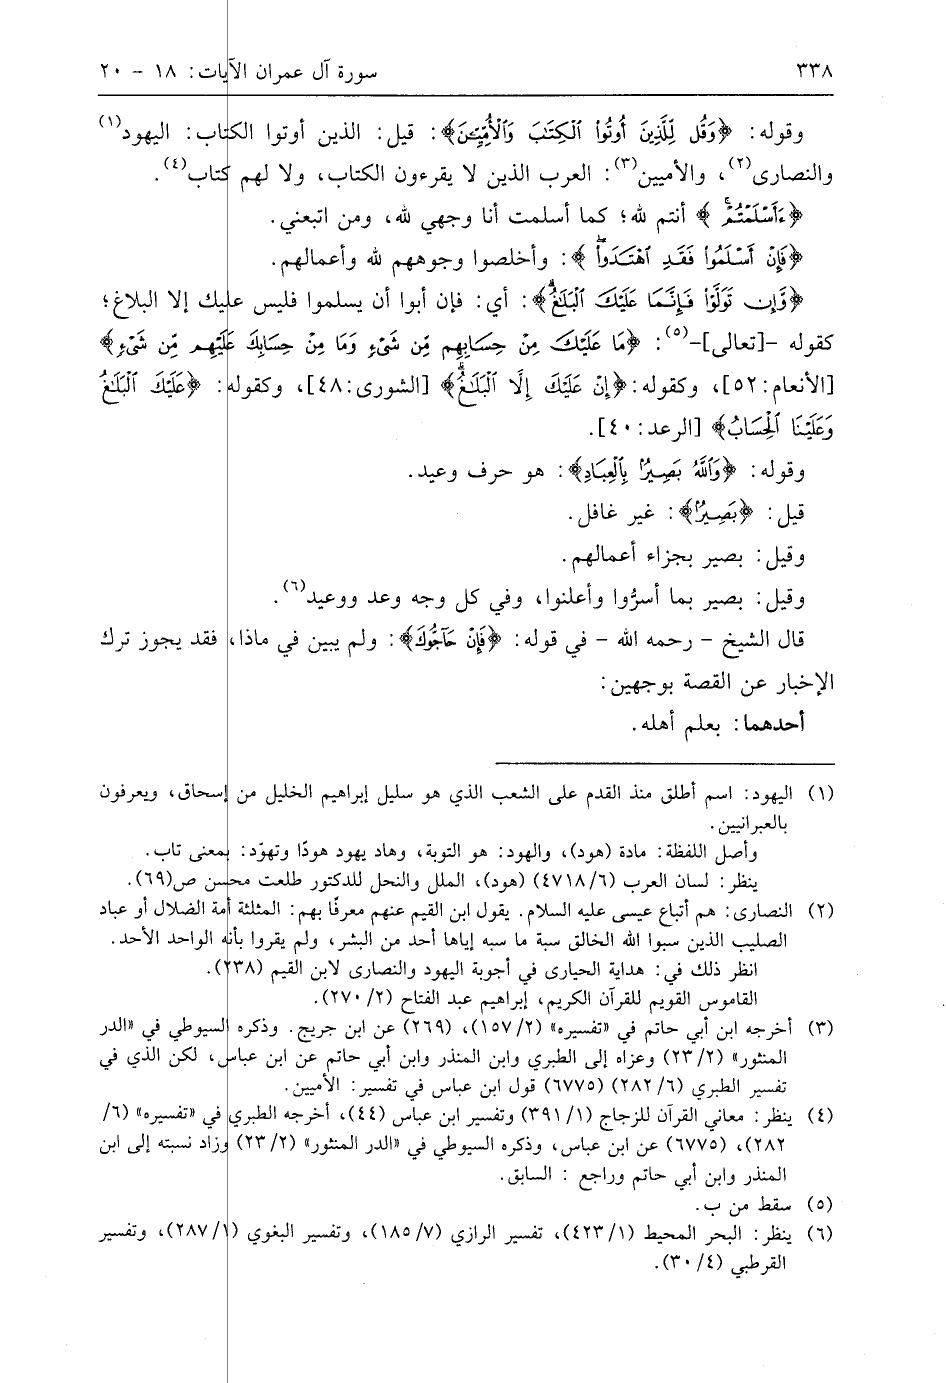 ٣٣٨ سورة آل عمران الآيات: ١٨ – ٢٠
وقوله: ﴿وَقُل لِّلَّذِينَ أُوتُوا۟ ٱلْكِتَٰبَ وَٱلْأُمِّيِّـۧنَ﴾: قيل: الذين أوتوا الكتاب: اليهود(١)
والنصارى(٢)، والأميين(٣): العرب الذين لا يقرءون الكتاب، ولا لهم كتاب(٤).
﴿ءَأَسْلَمْتُمْ﴾ أنتم لله؛ كما أسلمت أنا وجهي لله، ومن اتبعني.
﴿فَإِنْ أَسْلَمُوا۟ فَقَدِ ٱهْتَدَوا۟ۖ﴾: وأخلصوا وجوههم لله وأعمالهم.
﴿وَّإِن تَوَلَّوْا۟ فَإِنَّمَا عَلَيْكَ ٱلْبَلَٰغُۗ﴾: أي: فإن أبوا أن يسلموا فليس عليك إلا البلاغ؛
كقوله –[تعالى]–(٥): ﴿مَا عَلَيْكَ مِنْ حِسَابِهِم مِّن شَىْءٍ وَمَا مِنْ حِسَابِكَ عَلَيْهِم مِّن شَىْءٍ﴾
[الأنعام: ٥٢]، وكقوله: ﴿إِنْ عَلَيْكَ إِلَّا ٱلْبَلَٰغُۗ﴾ [الشورى: ٤٨]، وكقوله: ﴿عَلَيْكَ ٱلْبَلَٰغُ
وَعَلَيْنَا ٱلْحِسَابُ﴾ [الرعد: ٤٠].
وقوله: ﴿وَٱللَّهُ بَصِيرٌۢ بِٱلْعِبَادِ﴾: هو حرف وعيد.
قيل: ﴿بَصِيرٌۢ﴾: غير غافل.
وقيل: بصير بجزاء أعمالهم.
وقيل: بصير بما أسرُّوا وأعلنوا، وفي كل وجه وعد ووعيد(٦).
قال الشيخ – رحمه الله – في قوله: ﴿فَإِنْ حَآجُّوكَ﴾: ولم يبين في ماذا، فقد يجوز ترك
الإخبار عن القصة بوجهين:
أحدهما: بعلم أهله.
(١) اليهود: اسم أطلق منذ القدم على الشعب الذي هو سليل إبراهيم الخليل من إسحاق، ويعرفون
بالعبرانيين.
وأصل اللفظة: مادة (هود)، والهود: هو التوبة، وهاد يهود هودًا وتهوّد: بمعنى تاب.
ينظر: لسان العرب (٤٧١٨/٦) (هود)، الملل والنحل للدكتور طلعت محسن ص(٦٩).
(٢) النصارى: هم أتباع عيسى عليه السلام. يقول ابن القيم عنهم معرفًا بهم: المثلثة أمة الضلال أو عباد
الصليب الذين سبوا الله الخالق سبة ما سبه إياها أحد من البشر، ولم يقروا بأنه الواحد الأحد.
انظر ذلك في: هداية الحيارى في أجوبة اليهود والنصارى لابن القيم (٢٣٨).
القاموس القويم للقرآن الكريم، إبراهيم عبد الفتاح (٢٧٠/٢).
(٣) أخرجه ابن أبي حاتم في «تفسيره» (١٥٧/٢)، (٢٦٩) عن ابن جريج. وذكره السيوطي في «الدر
المنثور» (٢٣/٢) وعزاه إلى الطبري وابن المنذر وابن أبي حاتم عن ابن عباس، لكن الذي في
تفسير الطبري (٢٨٢/٦) (٦٧٧٥) قول ابن عباس في تفسير: الأميين.
(٤) ينظر: معاني القرآن للزجاج (٣٩١/١) وتفسير ابن عباس (٤٤)، أخرجه الطبري في «تفسيره» (٦/
٢٨٢)، (٦٧٧٥) عن ابن عباس، وذكره السيوطي في «الدر المنثور» (٢٣/٢) وزاد نسبته إلى ابن
المنذر وابن أبي حاتم وراجع : السابق.
(٥) سقط من ب.
(٦) ينظر: البحر المحيط (٤٢٣/١)، تفسير الرازي (١٨٥/٧)، وتفسير البغوي (٢٨٧/١)، وتفسير
القرطبي (٣٠/٤).